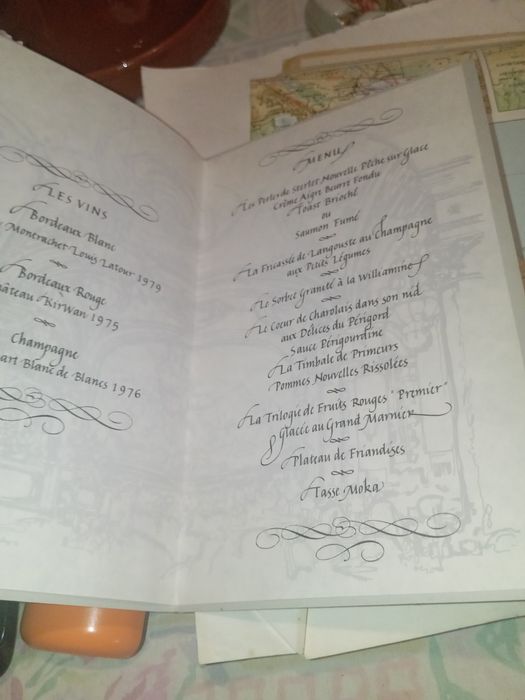 Les Vins
Bordeaux Blanc
Montrachet Louis Latour 1979
Bordeaux Rouge
hâteau Kirwan 1975
Champagne
art Blanc de Blancs 1976
Menu
Les Perles de Sterlet Nouvelle Pêche sur Glace
Crème Aigre Beurre Fondu
Toast Brioché
ou
Saumon Fumé
La Fricassée de Langouste au Champagne
aux Petits Légumes
Le Sorbet Granité à la Williamine
Le Coeur de Charolais dans son nid
aux Délices du Périgord
Sauce Périgourdine
La Timbale de Primeurs
Pommes Nouvelles Rissolées
La Trilogie de Fruits Rouges "Premier"
Glacée au Grand Marnier
Plateau de Friandises
Tasse Moka